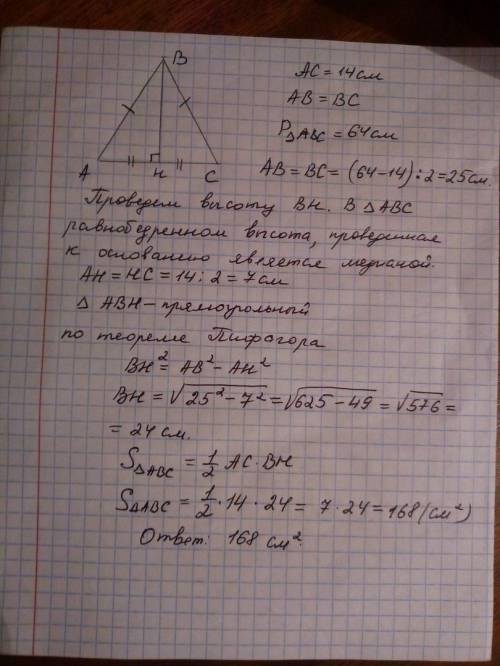 B
A
H
C
AC = 14 см
AB = BC
P△ABC = 64 см
AB = BC = (64 - 14) : 2 = 25 см.
Проведем высоту BH. В △ ABC
равнобедренном высота, проведенная
к основанию является медианой.
AH = HC = 14 : 2 = 7 см
△ ABH - прямоугольный
по теореме Пифагора
BH² = AB² - AH²
BH = √25² - 7² = √625 - 49 = √576 =
= 24 см.
S△ABC = 1/2 AC · BH
S△ABC = 1/2 · 14 · 24 = 7 · 24 = 168 (см²)
Ответ: 168 см².